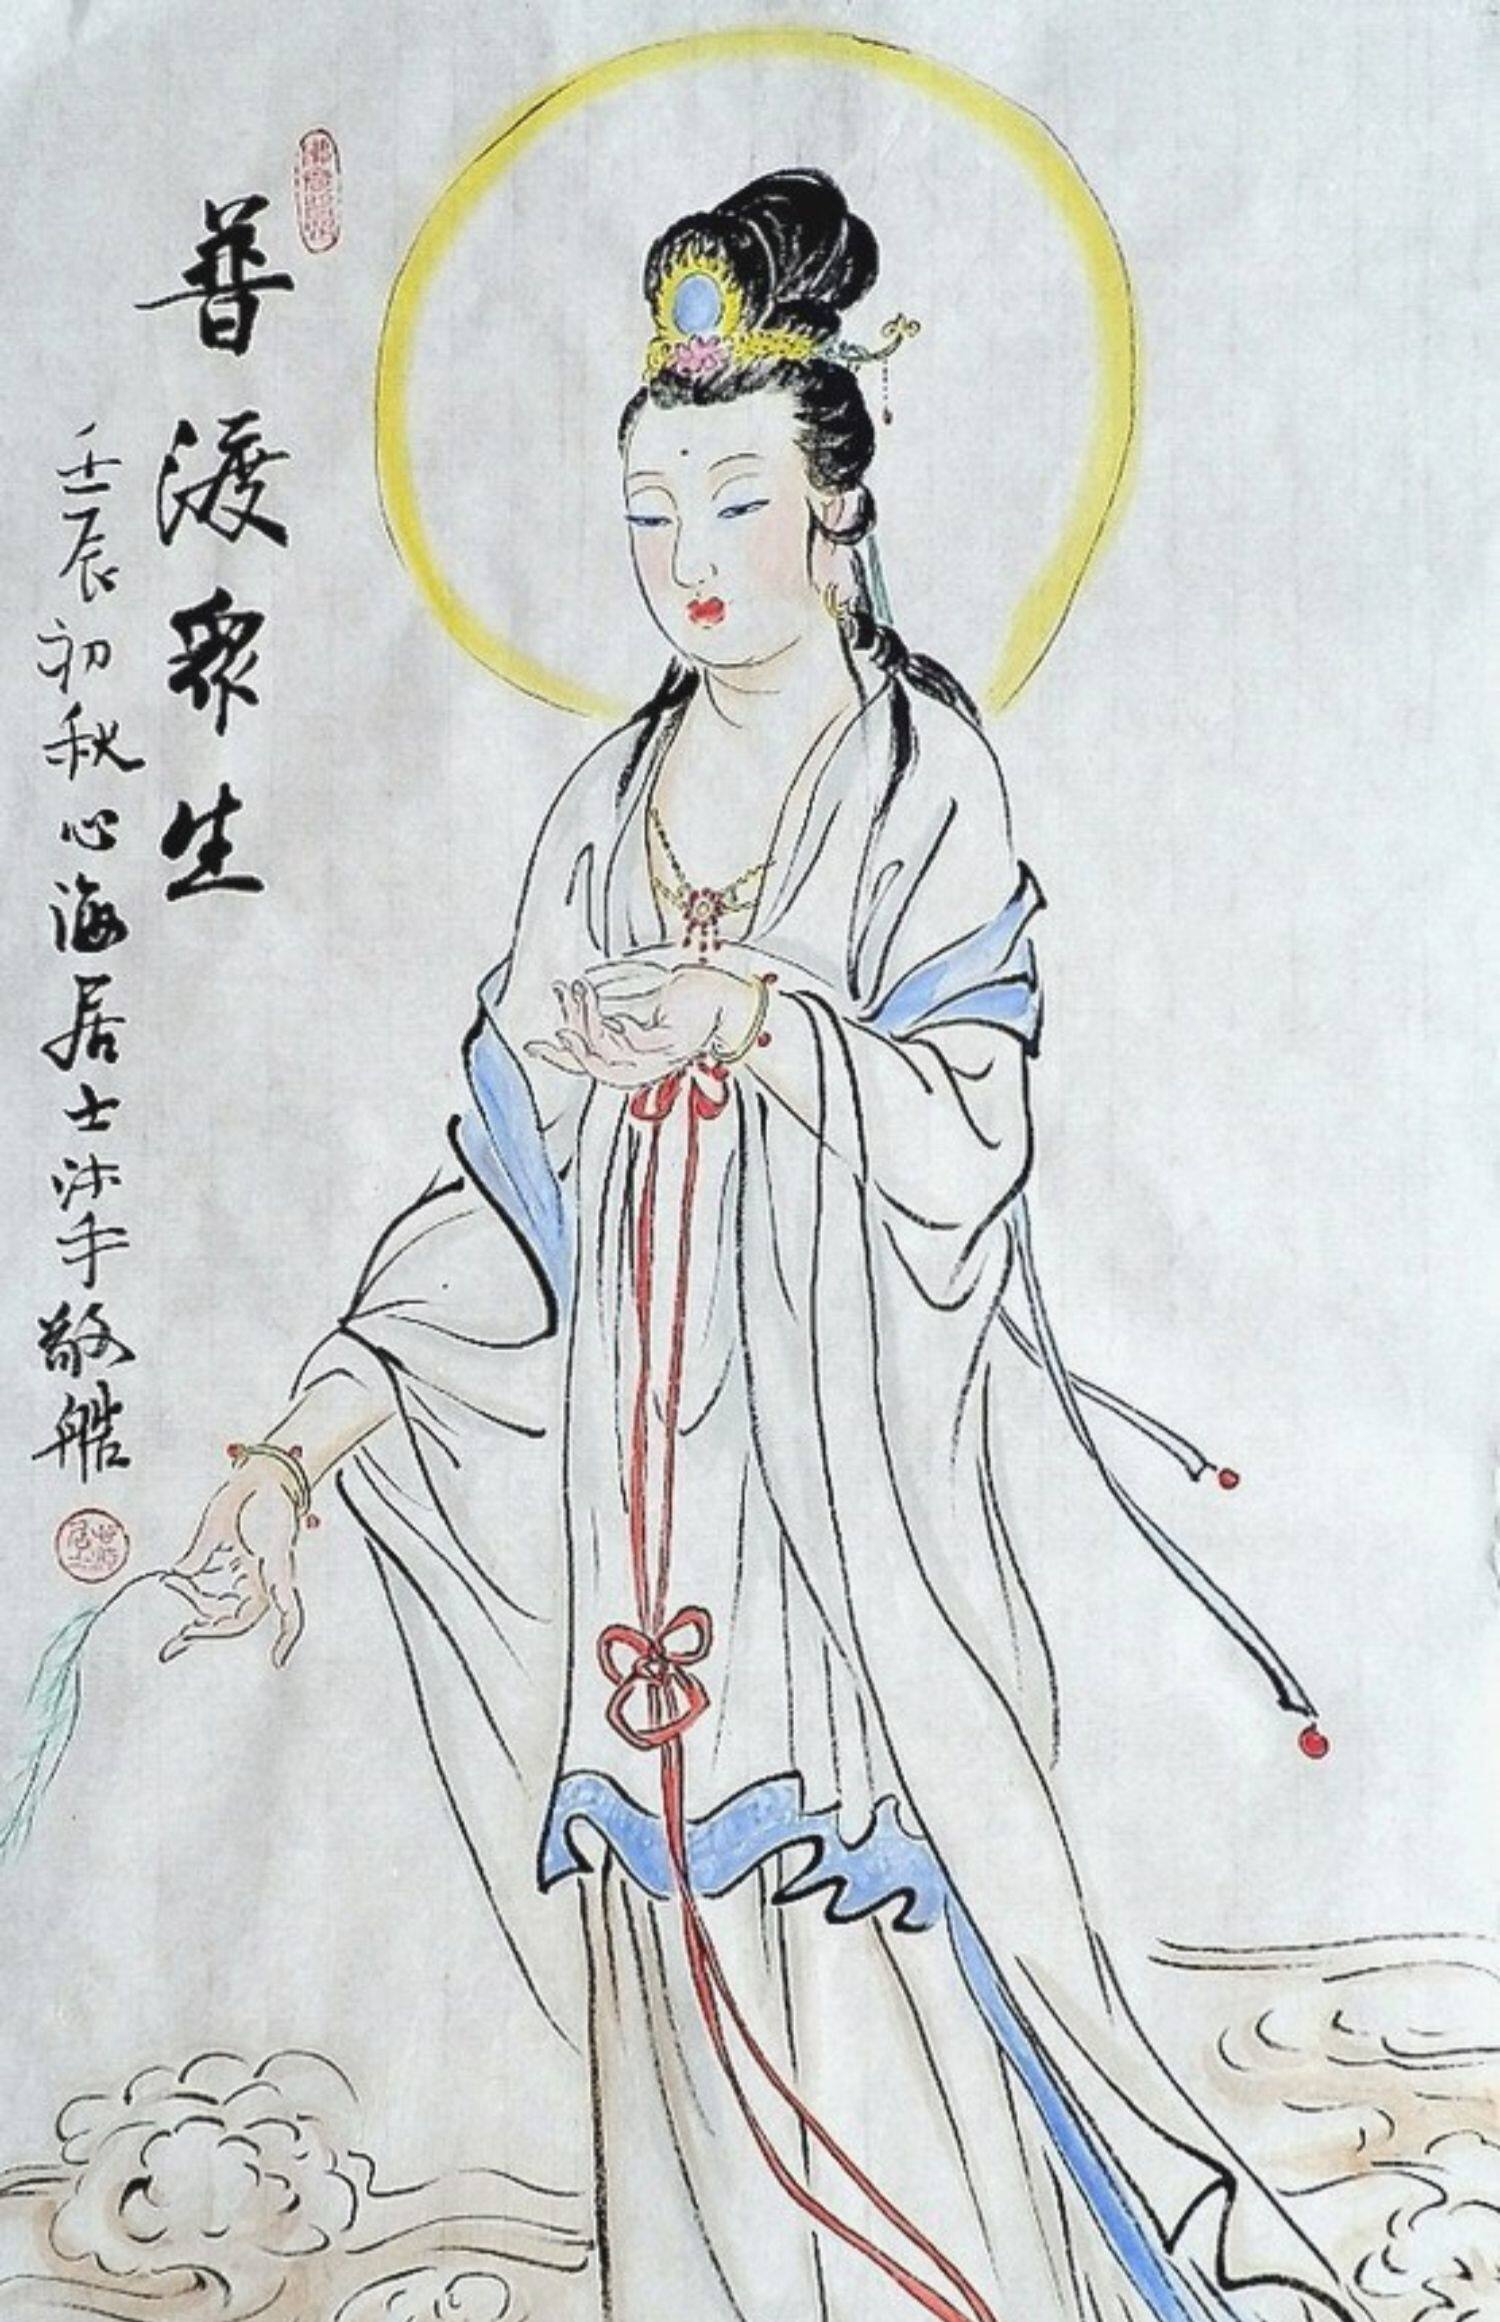 普渡眾生
壬辰初秋心海居士沐手敬